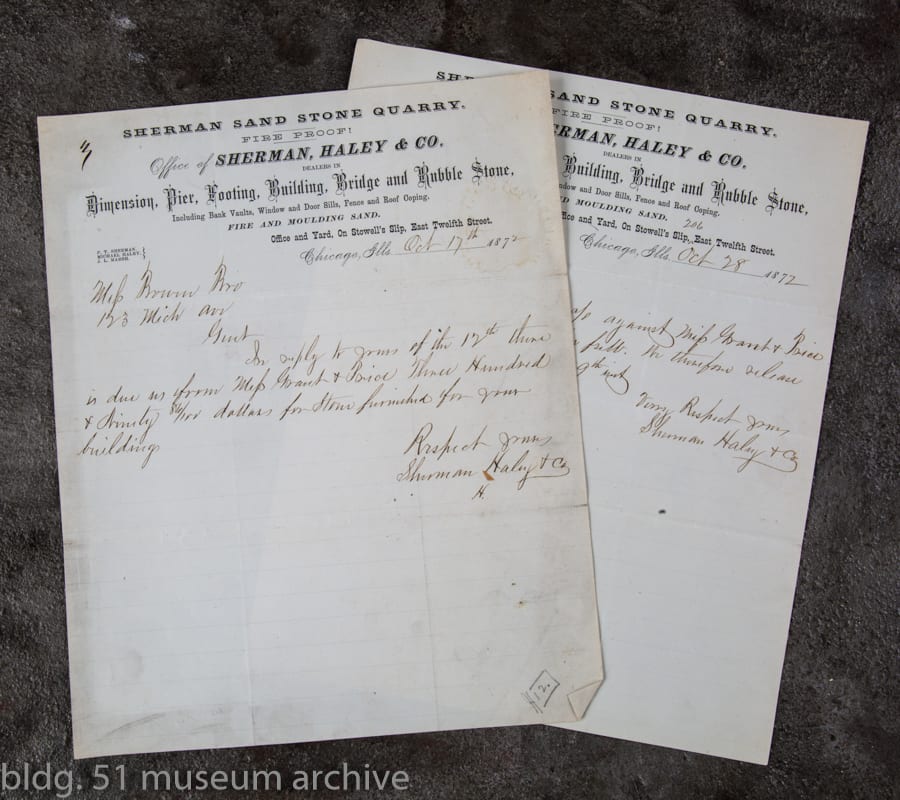 SHERMAN SAND STONE QUARRY.
FIRE PROOF!
Office of SHERMAN, HALEY & CO.
DEALERS IN
Dimension, Pier, Footing, Building, Bridge and Rubble Stone,
Including Bank Vaults, Window and Door Sills, Fence and Roof Coping.
FIRE AND MOULDING SAND.
Office and Yard, On Stowell's Slip, East Twelfth Street.
P. T. SHERMAN,
MICHAEL HALEY,
J. L. MARSH.
Chicago, Ills. Oct 17th 1872
Mess Brown Bro
123 Mich ave
Gent
In reply to yours of the 12th there
is due us from Mess Grant & Price Three Hundred
& Ninety /100 dollars for Stone furnished for your
buildings
Respect yours
Sherman Haley & Co
H.
2.
SH
SAND STONE QUARRY.
FIRE PROOF!
ERMAN, HALEY & CO.
DEALERS IN
Building, Bridge and Rubble Stone,
ndow and Door Sills, Fence and Roof Coping.
D MOULDING SAND.
206
ffice and Yard, On Stowell's Slip, East Twelfth Street.
Chicago, Ills. Oct 28 1872
against Mess Grant & Price
full. We therefore release
9th inst
Very Respect yours
Sherman Haley & Co
bldg. 51 museum archive